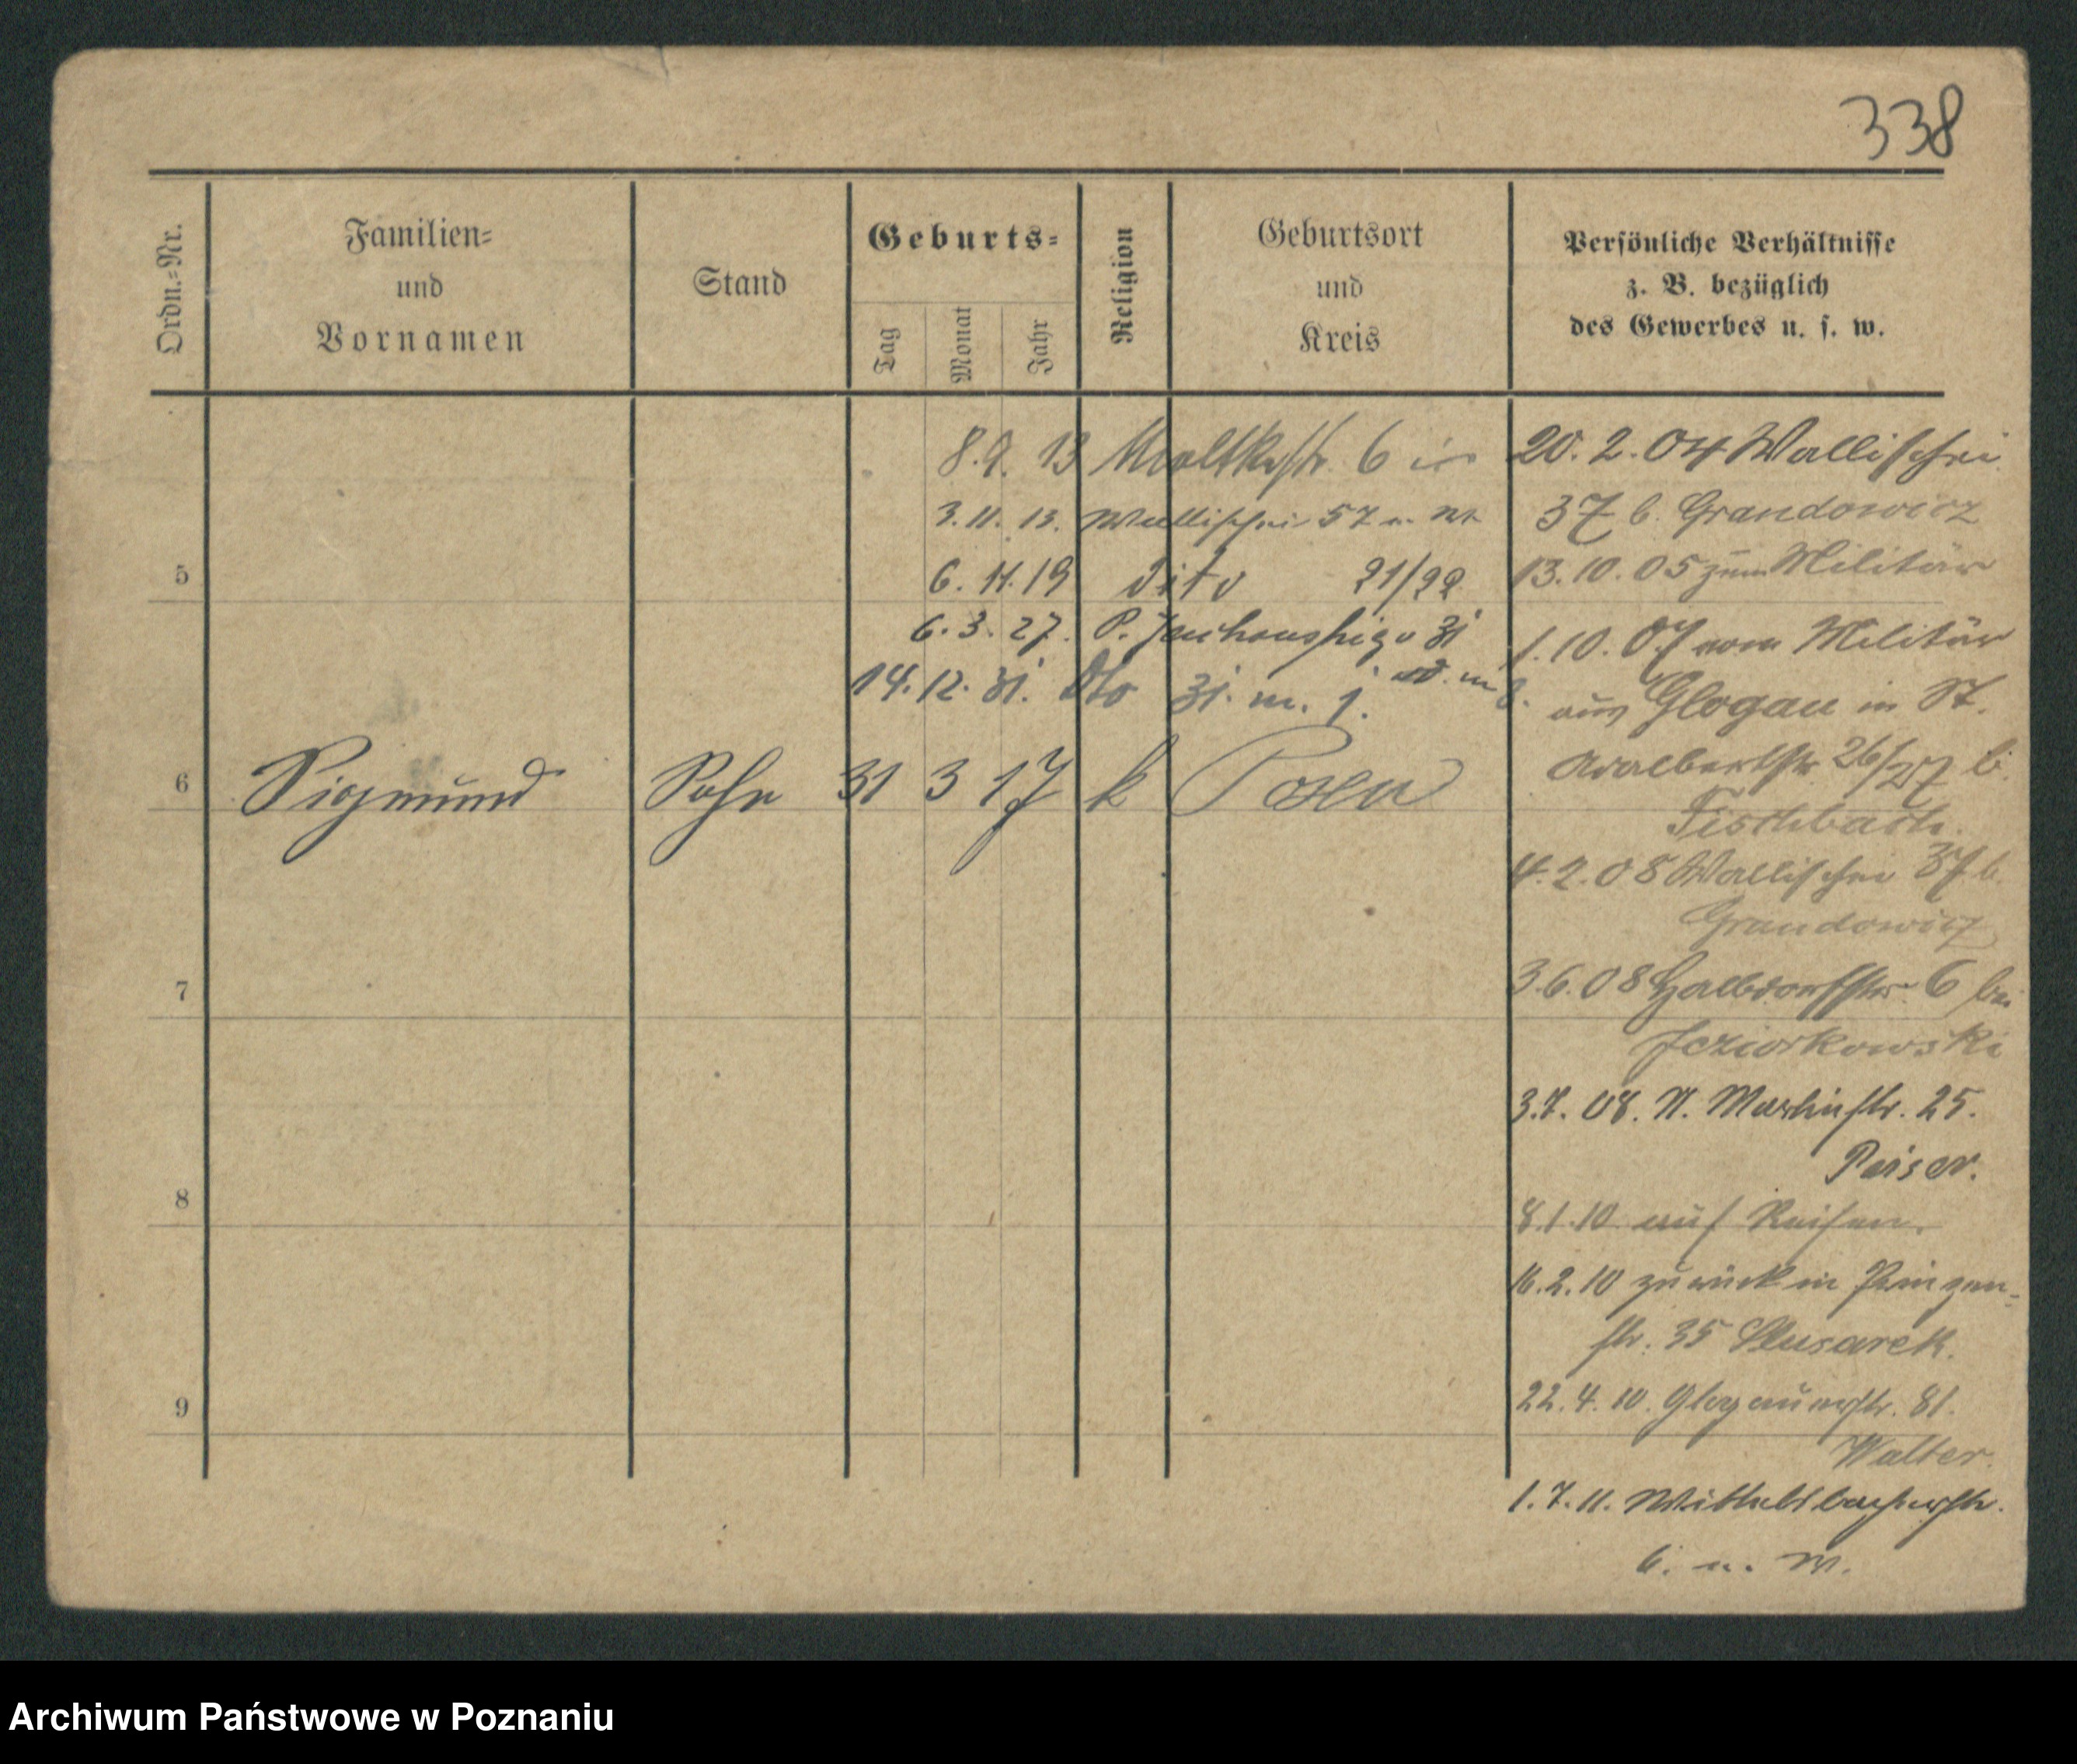 338
Ordn.-Nr.
Familien-
und
Vornamen
Stand
Geburts-
Tag
Monat
Jahr
Religion
Geburtsort
und
Kreis
Persönliche Verhältnisse
z. B. bezüglich
des Gewerbes u. s. w.
8.9. 13 Moltkestr. 6
3.11. 13. Wallischei 57 u.
5
6. 11. 19 dito 21/22
6. 3. 27. P. 31
14. 12. 31. dto 31. m. 1.
6 Sigmund Sohn 31 3 17 k Posen
7
8
9
20. 2. 04 Wallischei
37 b. Grandowicz
13. 10. 05 zum Militär
1. 10. 07 vom Militär
aus Glogau in St.
Adalbertstr 26/27 b.
Fischbach.
4. 2. 08 Wallischei 37 b.
Grandowicz
3.6.08 Halbdorfstr. 6 bei
Jeziorkowski
3.7. 08. St. Martinstr. 25.
Peiser.
8.1.10 auf Reisen.
16.2.10 zurück in Prinzen-
str. 35 Slusarek.
22. 4. 10. Glogauerstr. 81.
Walter.
1. 7. 11. Wittelsbacherstr.
6. u. W.
Archiwum Państwowe w Poznaniu